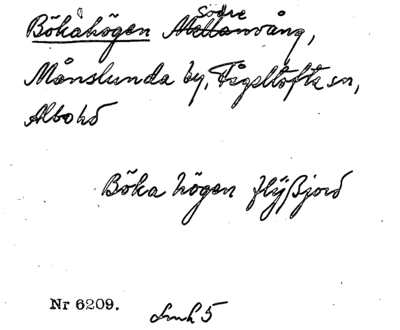 Bökahögen Södre Mellanvång,
Månslunda by, Fågeltofta sn,
Albo hd
Böka högen flyßjord
Nr 6209. Lmh 5